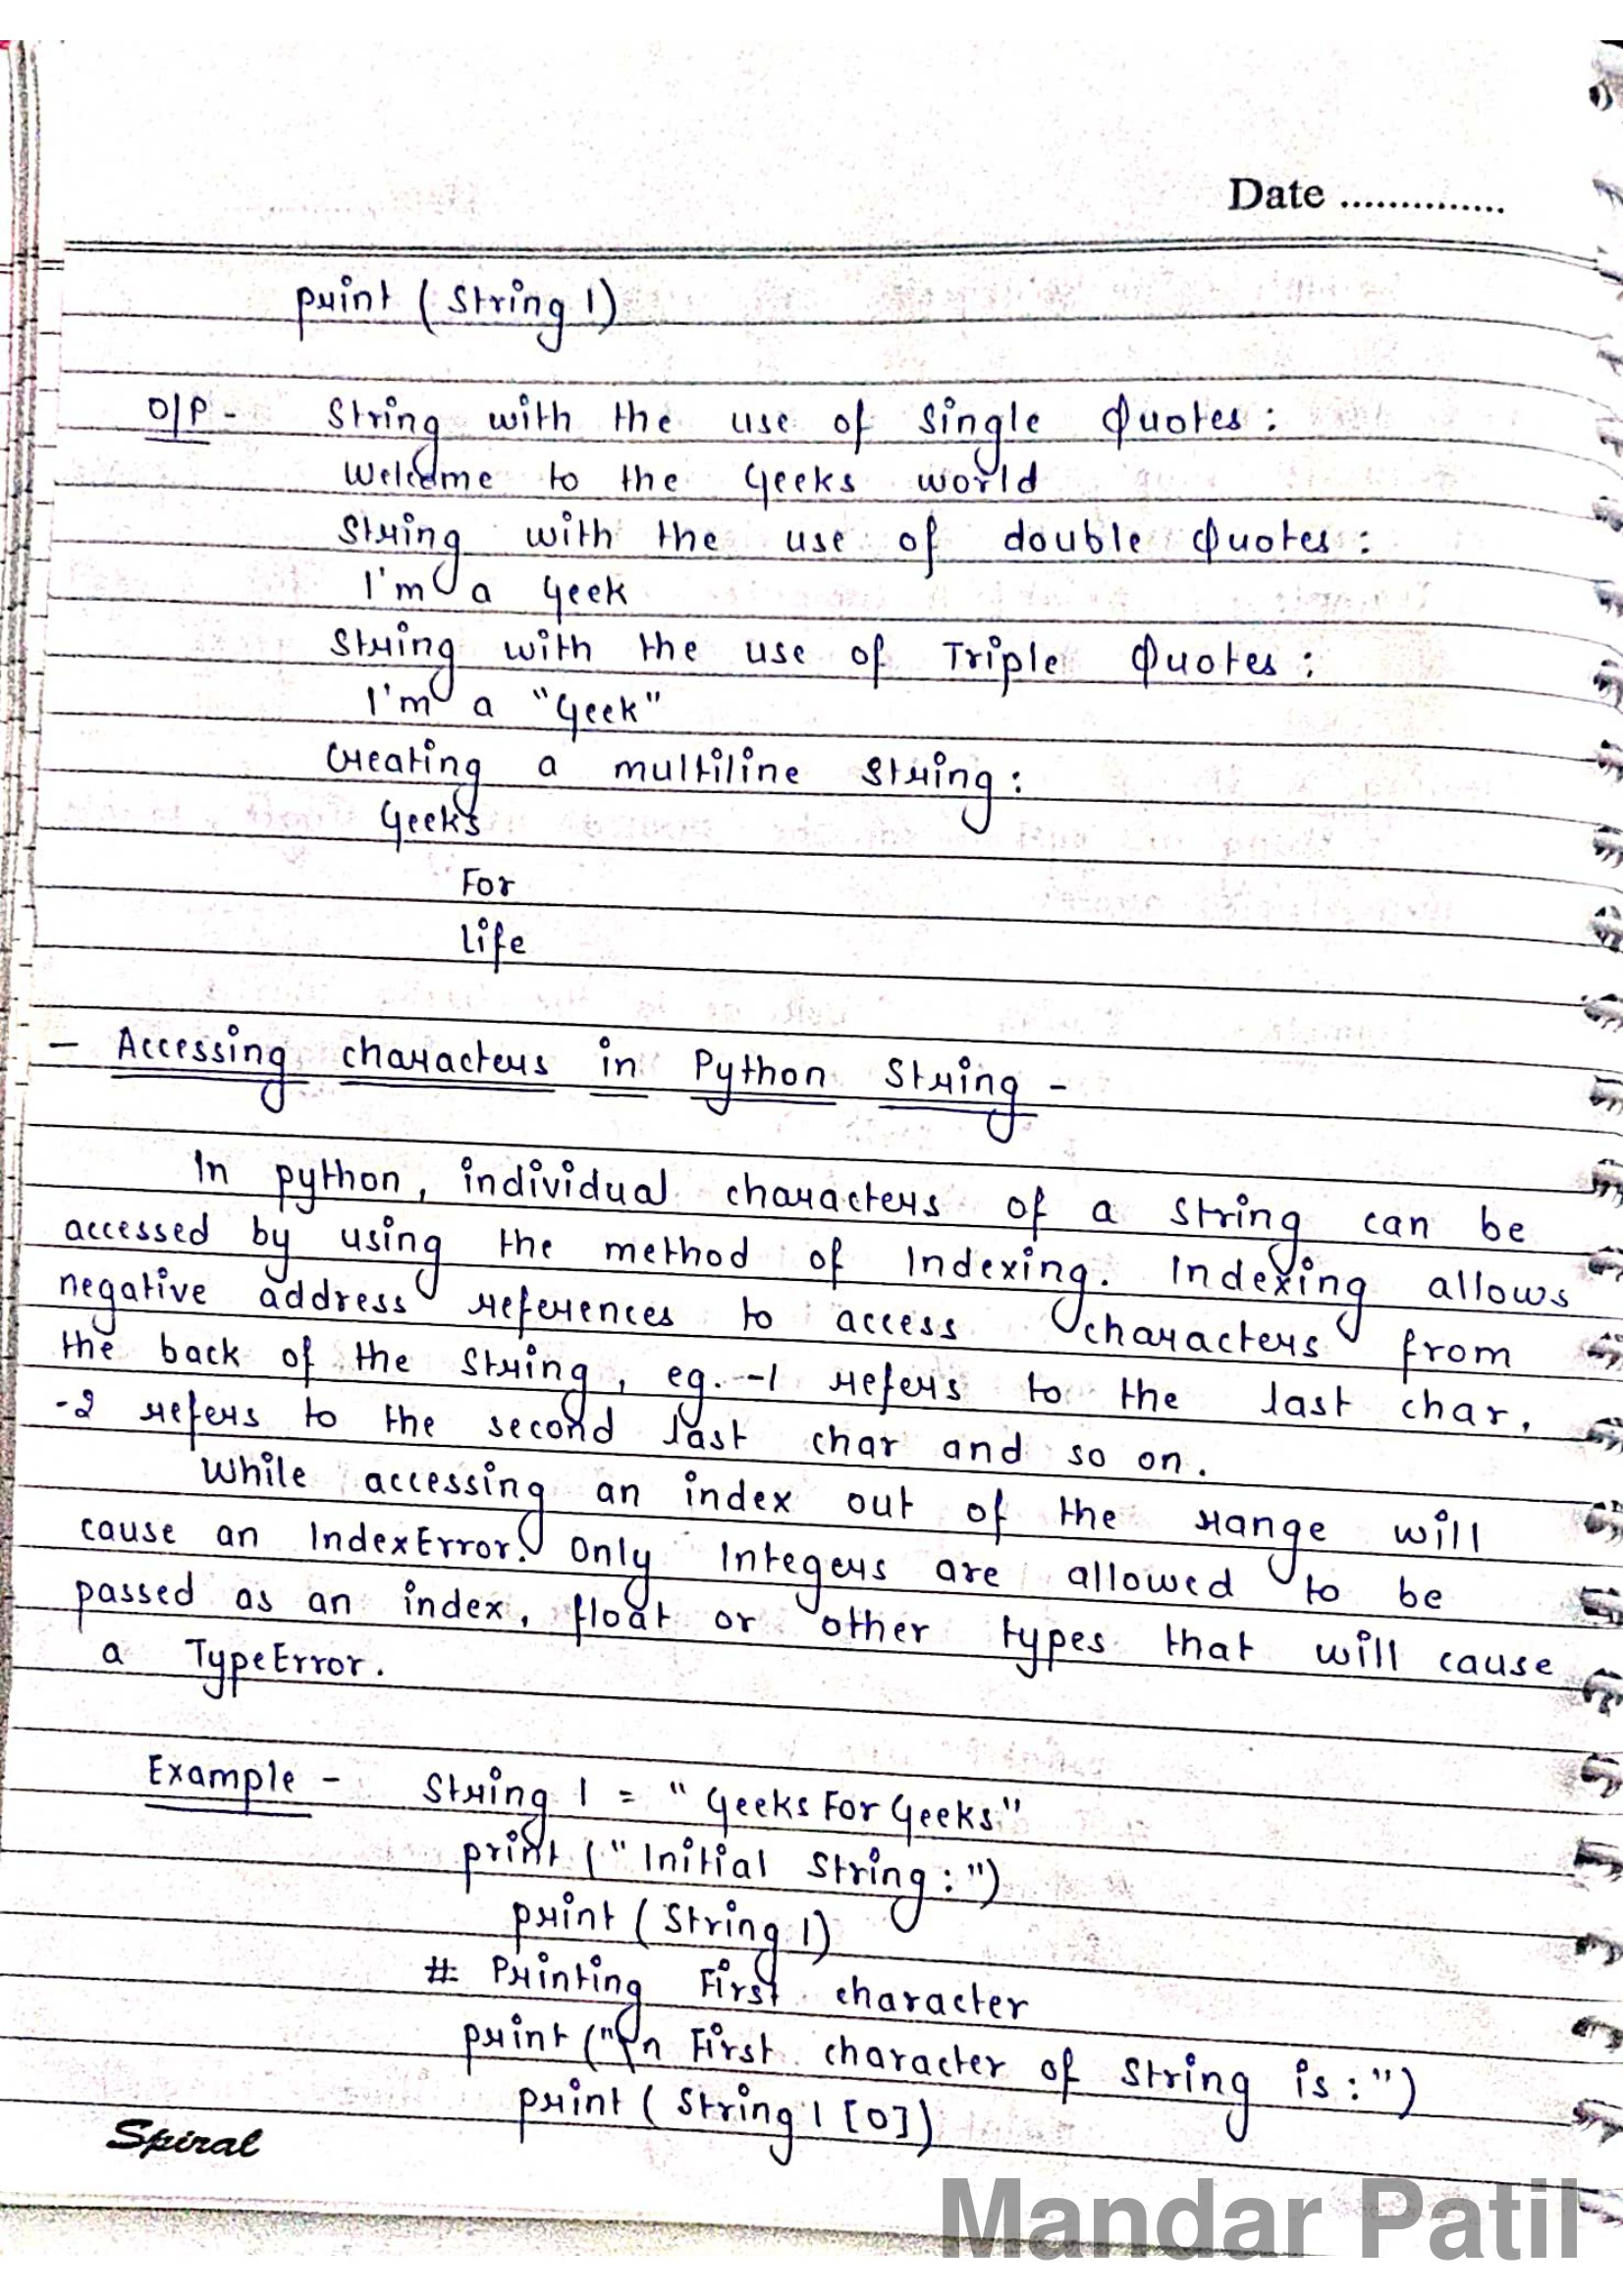 Date ..............
print (String 1)
O/P - String with the use of Single Quotes :
Welcome to the Geeks world
String with the use of double Quotes :
I'm a Geek
String with the use of Triple Quotes :
I'm a "Geek"
Creating a multiline String :
Geeks
For
life
- Accessing characters in Python String -
In python, individual characters of a string can be
accessed by using the method of Indexing. Indexing allows
negative address references to access characters from
the back of the String, eg. -1 refers to the last char,
-2 refers to the second last char and so on.
While accessing an index out of the range will
cause an IndexError. Only Integers are allowed to be
passed as an index, float or other types that will cause
a TypeError.
Example - String 1 = "GeeksForGeeks"
print ("Initial String : ")
print (String 1)
# Printing First character
print ("\n First character of String is : ")
print (String 1 [0])
Spiral
Mandar Patil